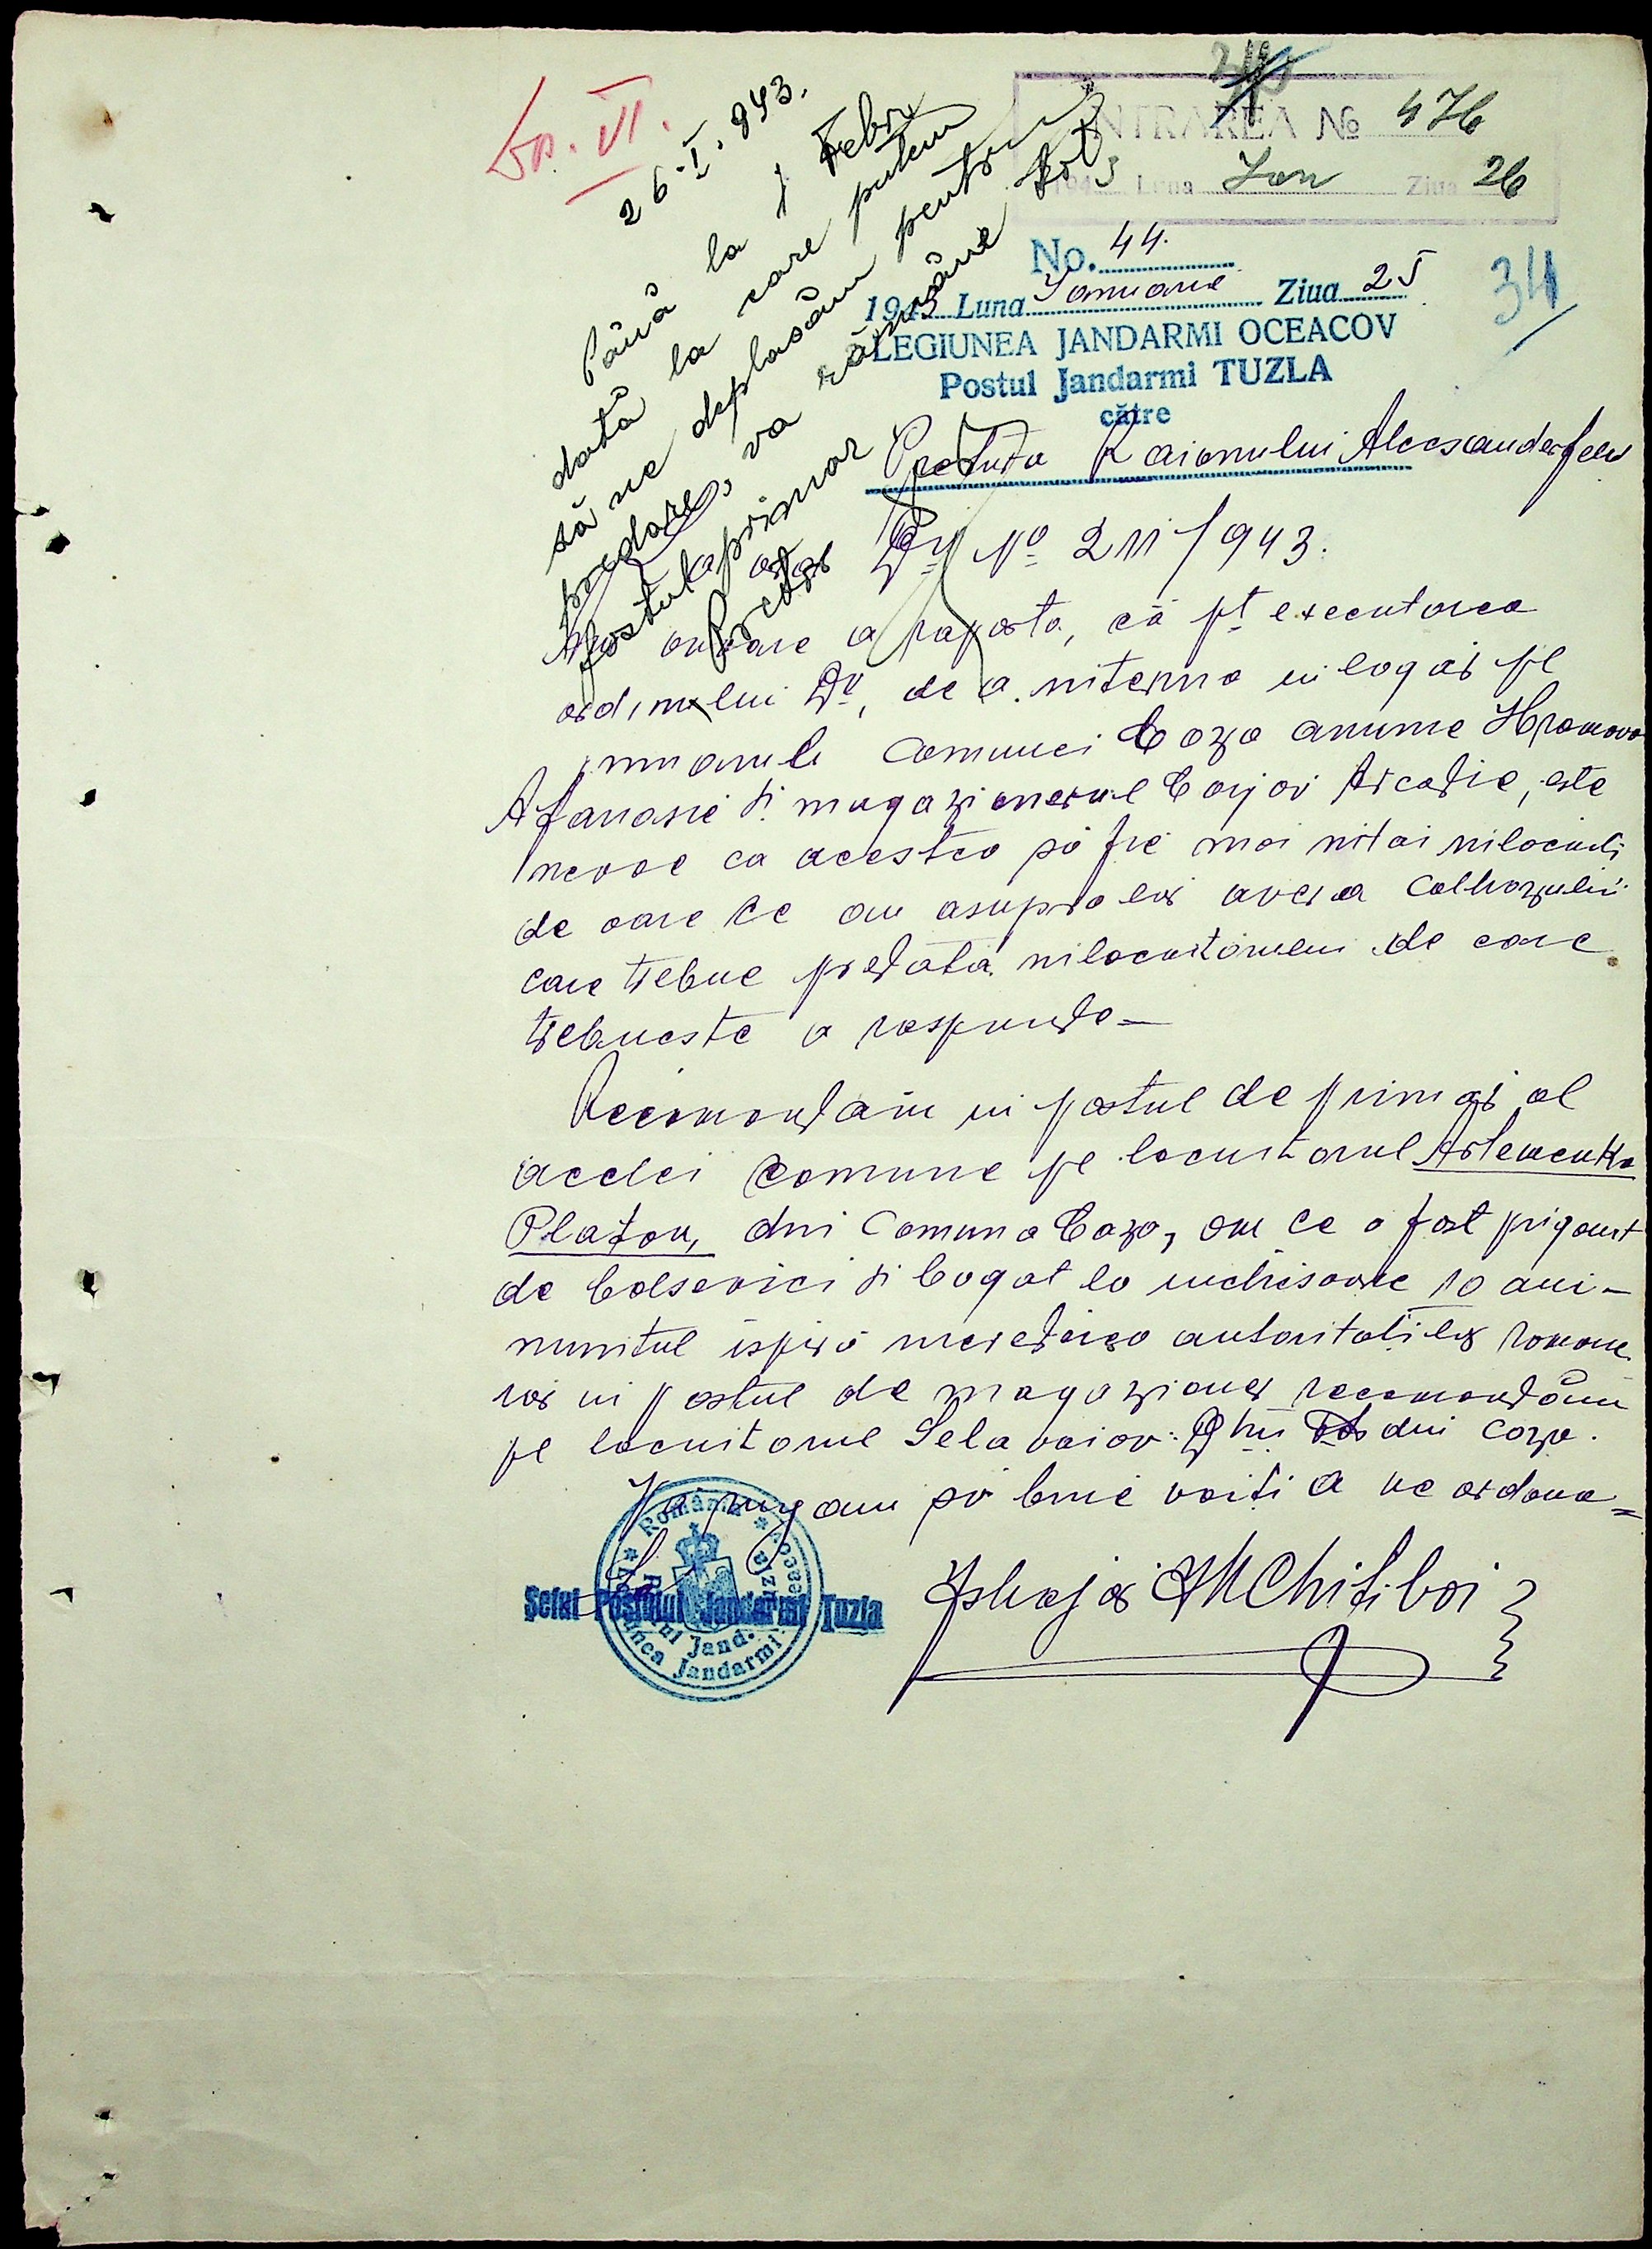 Sp. VI.
26.I.943.
Până la 1 Febr
dată la care putem
să ne deplasăm pentru
predare, va rămâne tot
fostul primar
Pretor
INTRAREA № 476
194 3 Luna Ian Ziua 26
No. 44.
1943 Luna Ianuarie Ziua 25
LEGIUNEA JANDARMI OCEACOV
Postul Jandarmi TUZLA
către
34
Pretura Raionului Alecsanderfeld
La Dv No 211/943.
Am onoare a raporta, că pt executarea
ordinului Dv, de a interna in lagăr pe
primarul Comunei Coza anume Hromova
Afanasie si magazionerul Cojov Arcadie, este
nevoe ca acestea să fie mai intai inlocuiti
de oare ce au asupra lor averea Colhozului
care trebue predată inlocuitorului de care
trebueste a raspunde –
Recomandăm in postul de primar al
acelei comune pe locuitorul Artemenko
Platon, din Comuna Coza, om ce a fost prigonit
de bolsevici si bagat la inchisoare 10 ani –
numitul ispiră incredere autoritatilor romane
iar in postul de magazioner recomandăm
pe locuitorul din Coza.
Va rugam să bine voiti a ne ordona =
Șeful Postului Jandarmi Tuzla
România
Postul Jand. Tuzla
Legiunea Jandarmi Oceacov